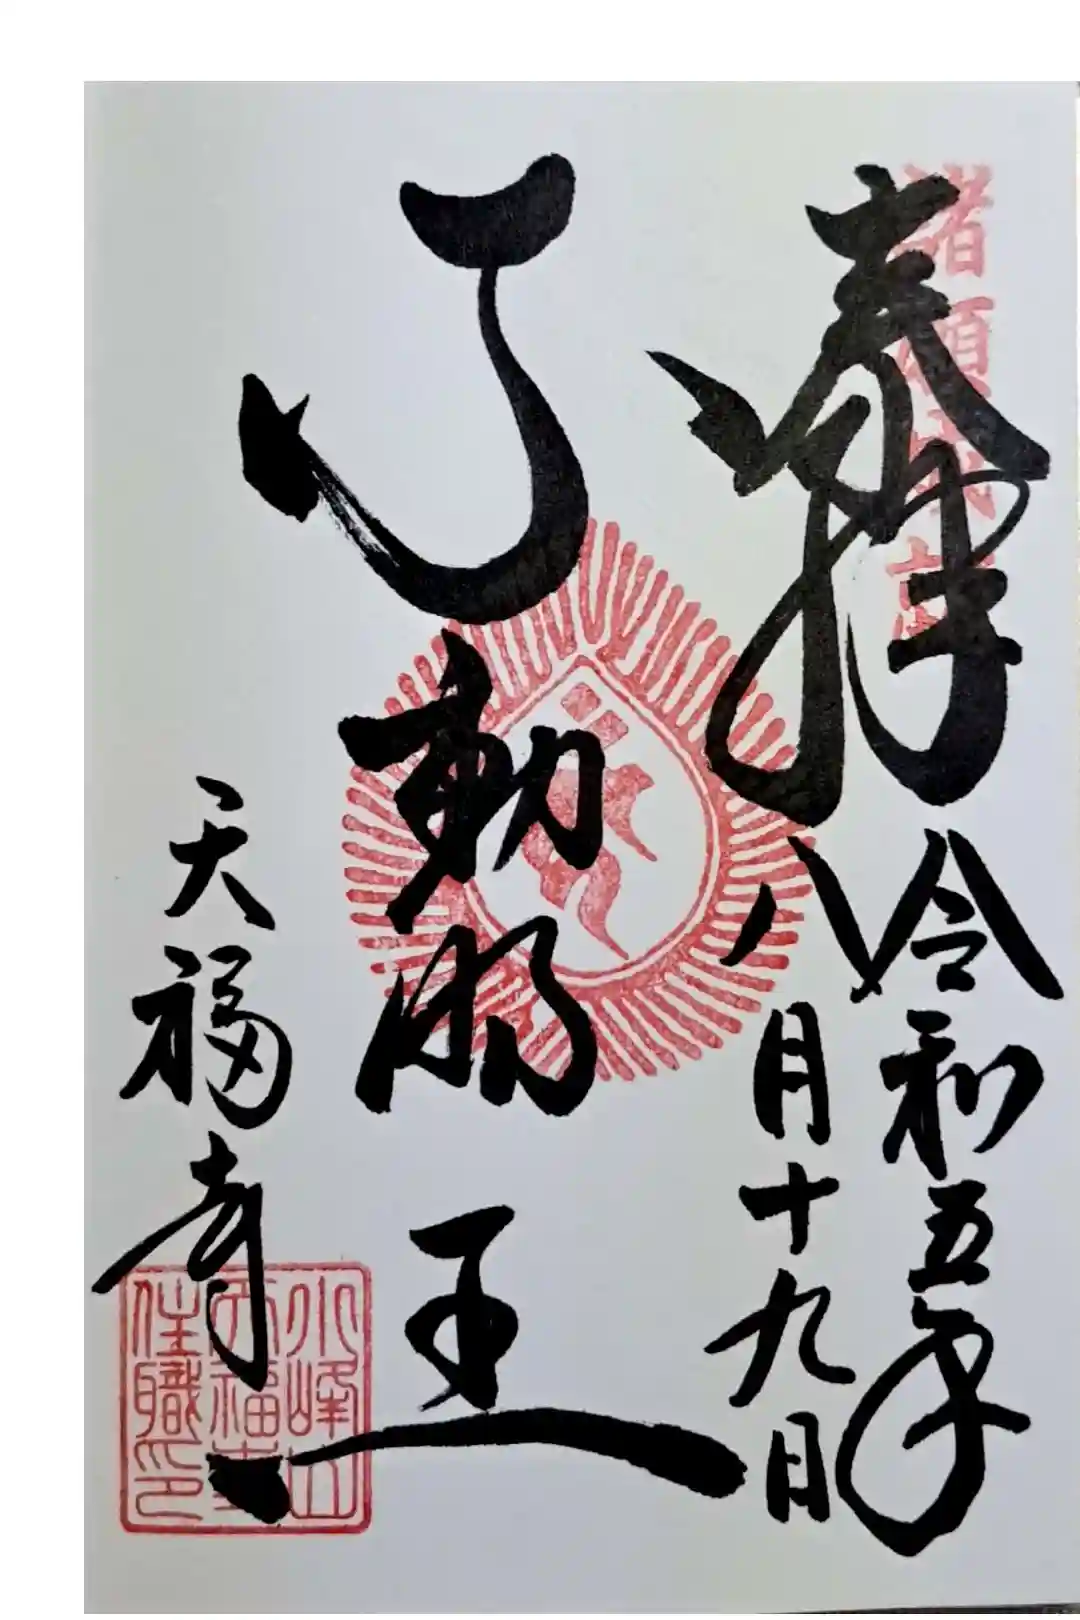 諸願成就
奉拝
令和五年
八月十九日
不動明王
天福寺
峰山
天福寺
住職印